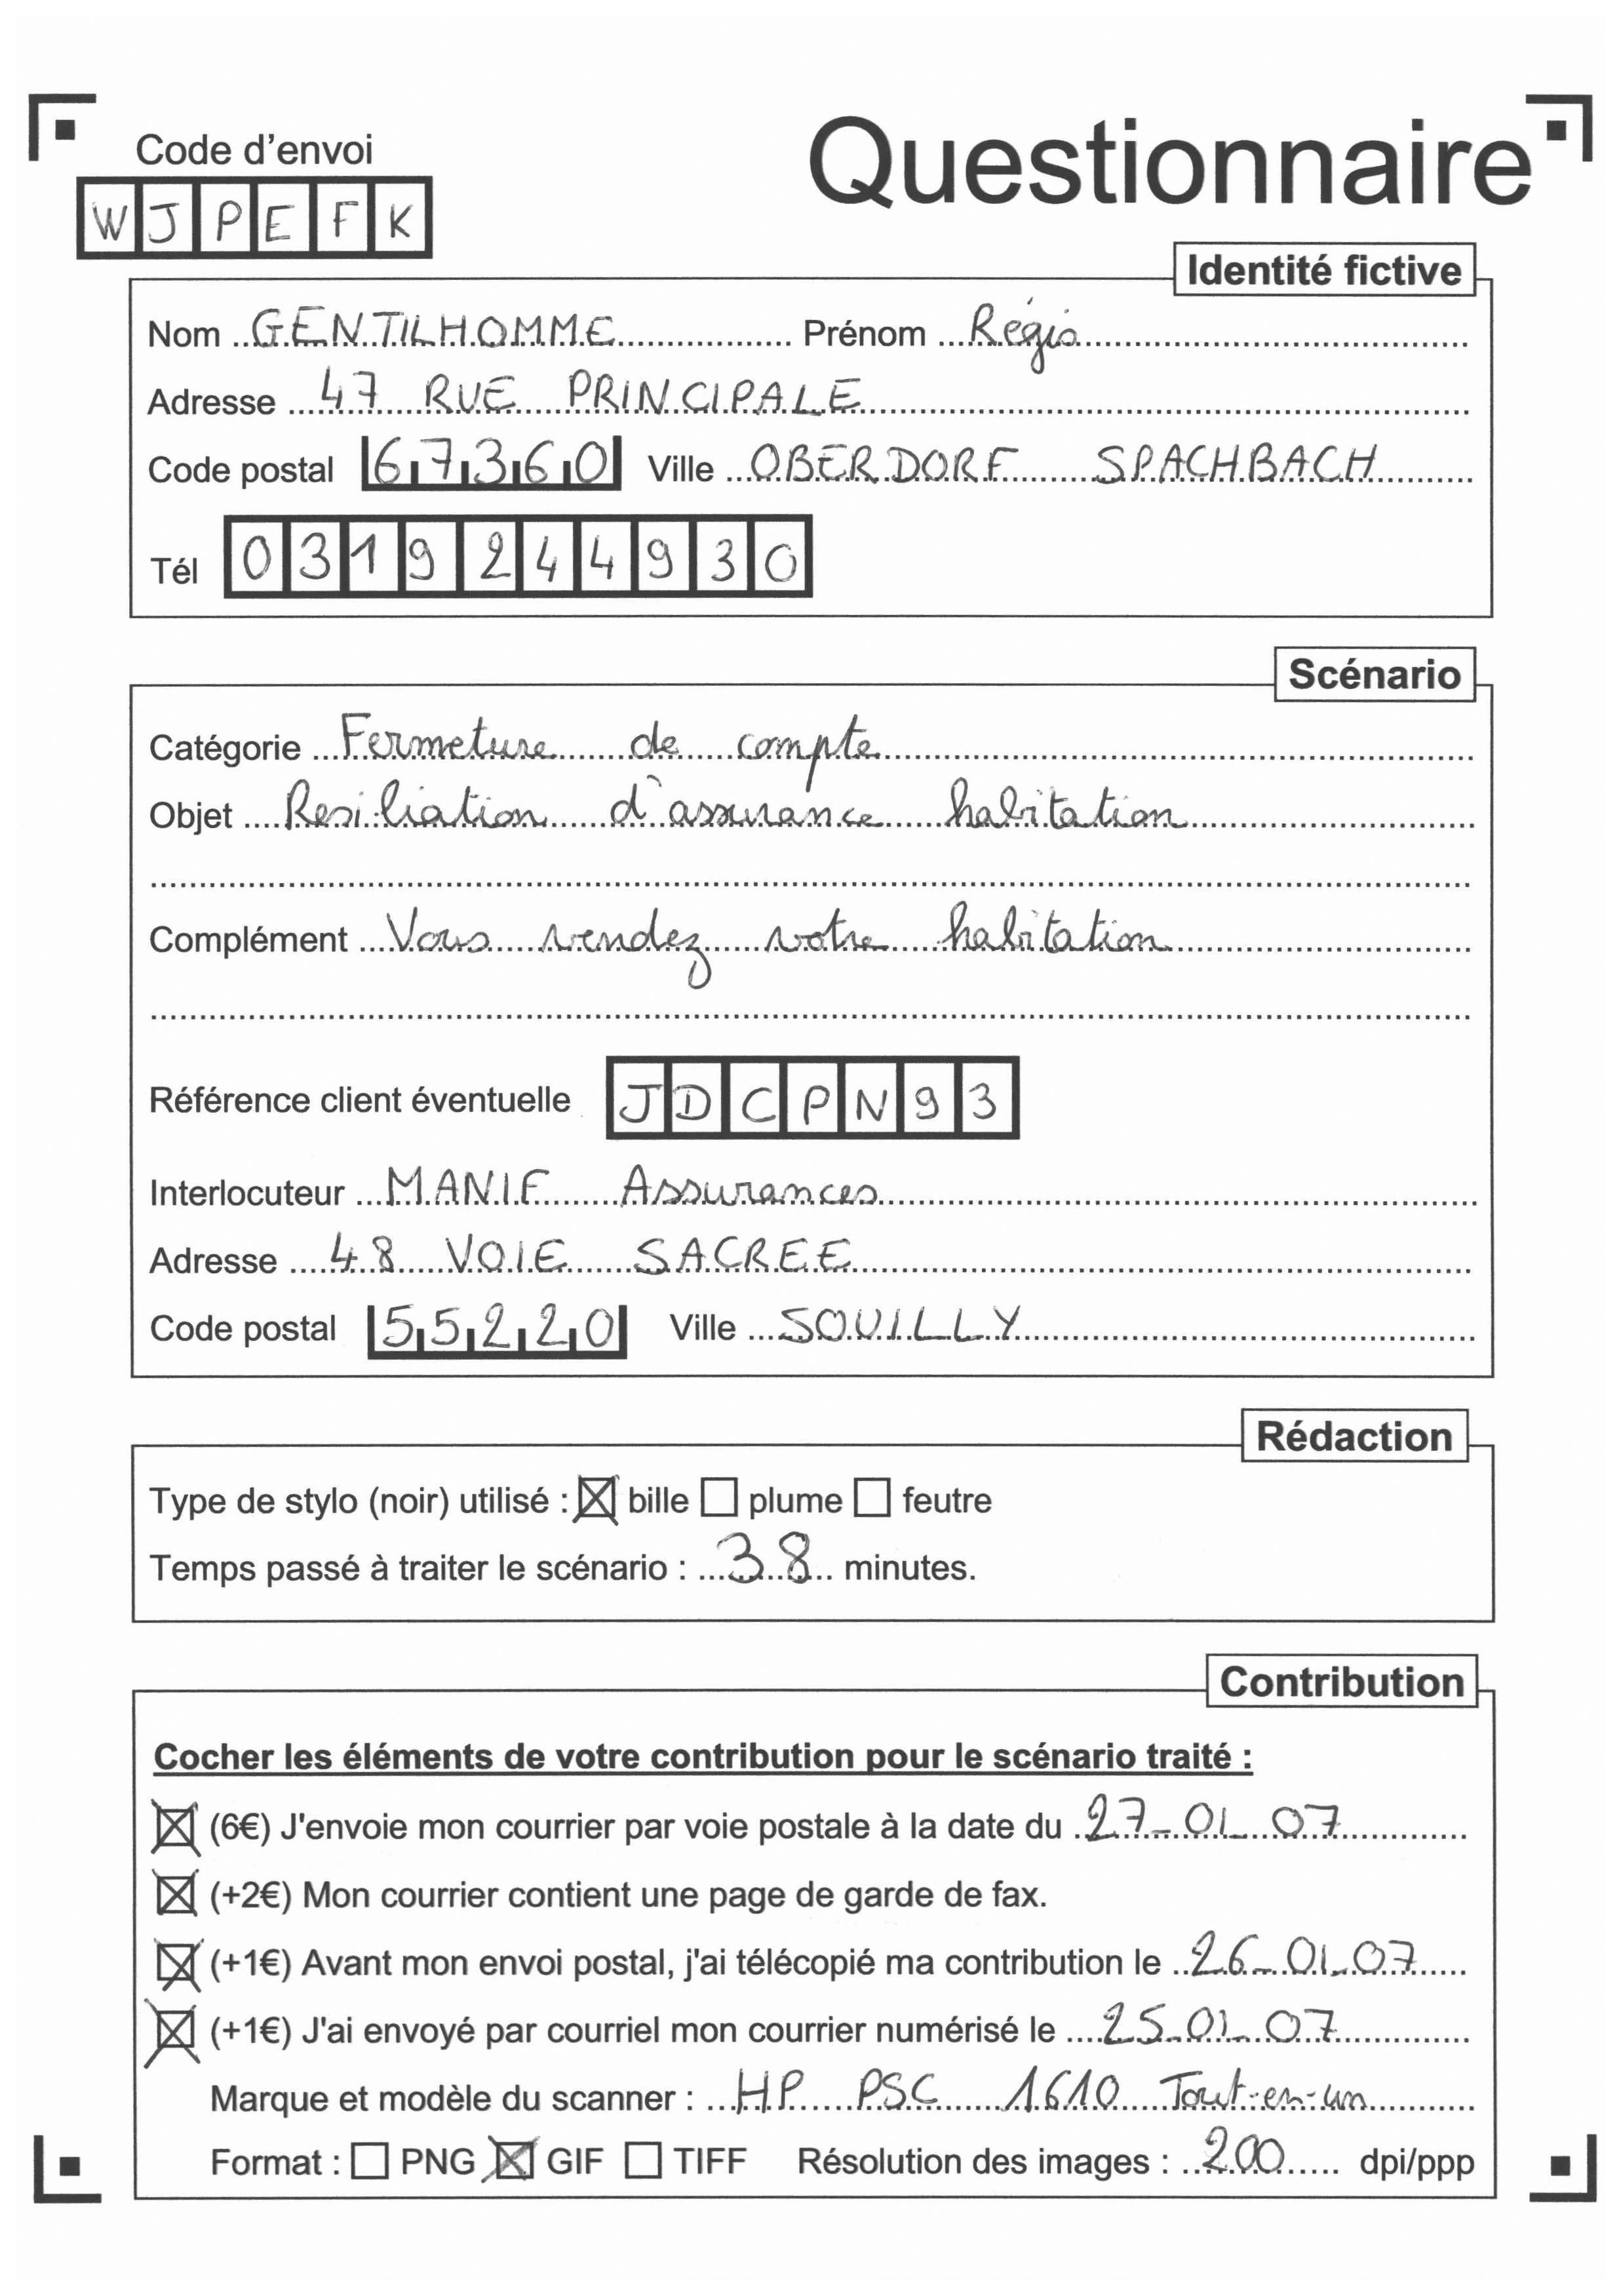 Code d'envoi
Questionnaire
WJPEFK
Identité fictive
Nom GENTILHOMME Prénom Régis
Adresse 47 RUE PRINCIPALE
Code postal 67360 Ville OBERDORF SPACHBACH
Tél 0319244930
Scénario
Catégorie Fermeture de compte
Objet Resiliation d'assurance habitation
Complément Vous vendez votre habitation
Référence client éventuelle JDCPN93
Interlocuteur MANIF Assurances
Adresse 48 VOIE SACREE
Code postal 55220 Ville SOUILLY
Rédaction
Type de stylo (noir) utilisé : ☒ bille ☐ plume ☐ feutre
Temps passé à traiter le scénario : 38 minutes.
Contribution
Cocher les éléments de votre contribution pour le scénario traité :
☒ (6€) J'envoie mon courrier par voie postale à la date du 27-01-07
☒ (+2€) Mon courrier contient une page de garde de fax.
☒ (+1€) Avant mon envoi postal, j'ai télécopié ma contribution le 26-01-07
☒ (+1€) J'ai envoyé par courriel mon courrier numérisé le 25-01-07
Marque et modèle du scanner : HP PSC 1610 Tout-en-un
Format : ☐ PNG ☒ GIF ☐ TIFF Résolution des images : 200 dpi/ppp